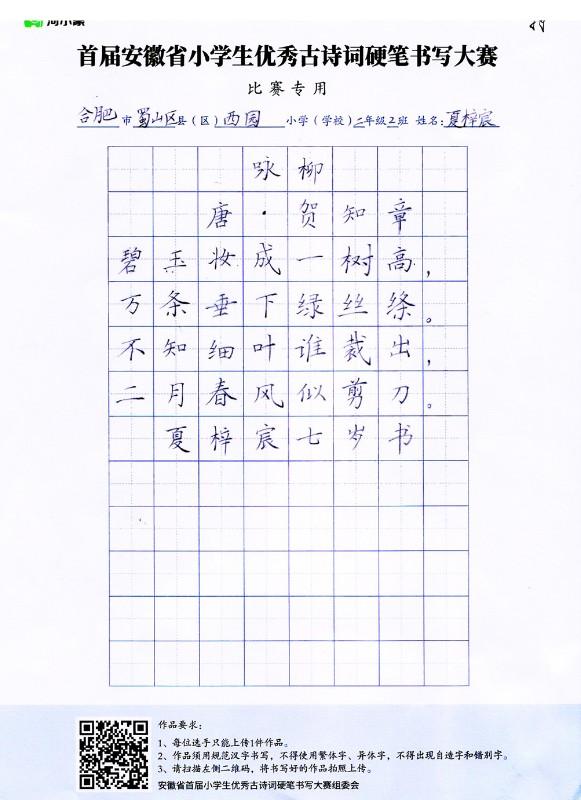 河小象
首届安徽省小学生优秀古诗词硬笔书写大赛
比赛专用
合肥市蜀山区县（区）西园小学（学校）二年级2班 姓名：夏梓宸
咏柳
唐·贺知章
碧玉妆成一树高，
万条垂下绿丝绦。
不知细叶谁裁出，
二月春风似剪刀。
夏梓宸七岁书
作品要求：
1、每位选手只能上传1件作品。
2、作品须用规范汉字书写，不得使用繁体字、异体字，不得出现自造字和错别字。
3、请扫描左侧二维码，将书写好的作品拍照上传。
安徽省首届小学生优秀古诗词硬笔书写大赛组委会